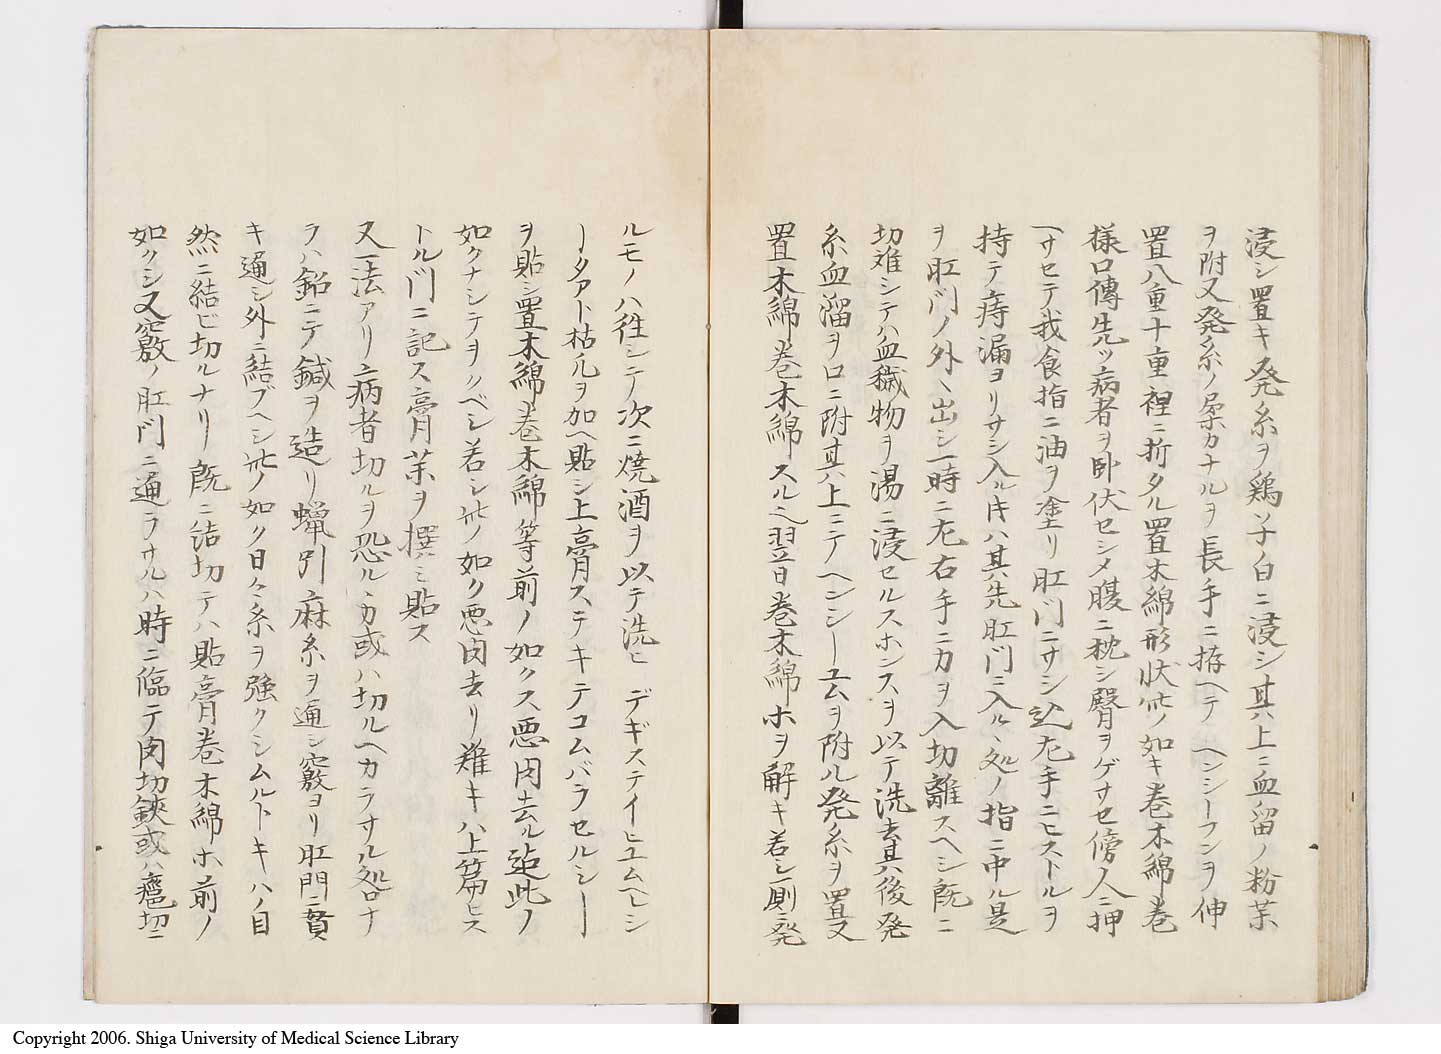 浸シ置キ発糸ヲ鶏ノ子白ニ浸シ其上ニ血留ノ粉茉
ヲ附又発糸ノ柔カナルヲ長手ニ拵ヘテヘンシーフンヲ伸
置八重十重裡ニ折タル置木綿形状此ノ如キ巻木綿巻
様口傳先ツ病者ヲ卧伏セシメ腹ニ枕シ臀ヲゲサセ傍人ニ押
ヘサセテ我食指ニ油ヲ塗リ肛門ニサシ込尨手ニヒストルヲ
持テ痔漏ヨリサシ入ル片ハ其先肛門ニ入ル丶処ノ指ニ中ル是
ヲ肛門ノ外ヘ出シ一時ニ尨右手ニカヲ入切離スヘシ既ニ
切難シテハ血穢物ヲ湯ニ浸セルスホンスヲ以テ洗去其後発
糸血溜ヲロニ附其上ニテヘンシーユムヲ附ル発ノ糸ヲ置又
置木綿巻木綿スルヘ翌日巻木綿ホヲ解キ若シ則ニ発
ルモノハ徃シテ次ニ焼酒ヲ以テ洗ヒデギステイヒユムヘレシ
ータアト枯凢ヲ加ヘ貼シ上膏ステキテコムバラセルシー
ヲ貼シ置木綿巻木綿等前ノ如クス悪肉去ル迠此ノ
如クナシテヲクベシ若シ此ノ如ク悪肉去リ難キハ上篇ヒス
トル門ニ記ス膏茉ヲ撰ミ貼ス
又一法アリ病者切ルヲ恐ル丶カ或ハ切ルヘカラサル処ロナ
ラハ鉛ニテ鍼ヲ造リ蠟引麻糸ヲ通シ竅ヨリ肛門ニ貫
キ通シ外ニ結ブヘシ此ノ如ク日々糸ヲ強クシムルトキハ自
然ニ結ビ切ルナリ既ニ結切テハ貼膏巻木綿ホ前ノ
如クシ又竅ノ肛門ニ通ラサルハ時ニ臨テ肉切鋏或ハ癰切ニ
Copyright 2006. Shiga University of Medical Science Library